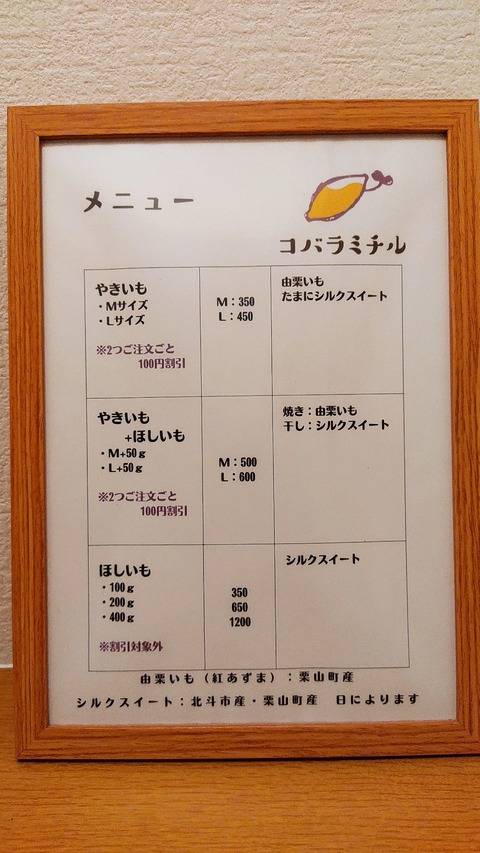 メニュー
コバラミチル
やきいも
・Mサイズ
・Lサイズ
※2つご注文ごと
100円割引
M：350
L：450
由栗いも
たまにシルクスイート
やきいも
+ほしいも
・M+50g
・L+50g
※2つご注文ごと
100円割引
M：500
L：600
焼き：由栗いも
干し：シルクスイート
ほしいも
・100g
・200g
・400g
※割引対象外
350
650
1200
シルクスイート
由栗いも（紅あずま）：栗山町産
シルクスイート：北斗市産・栗山町産　日によります